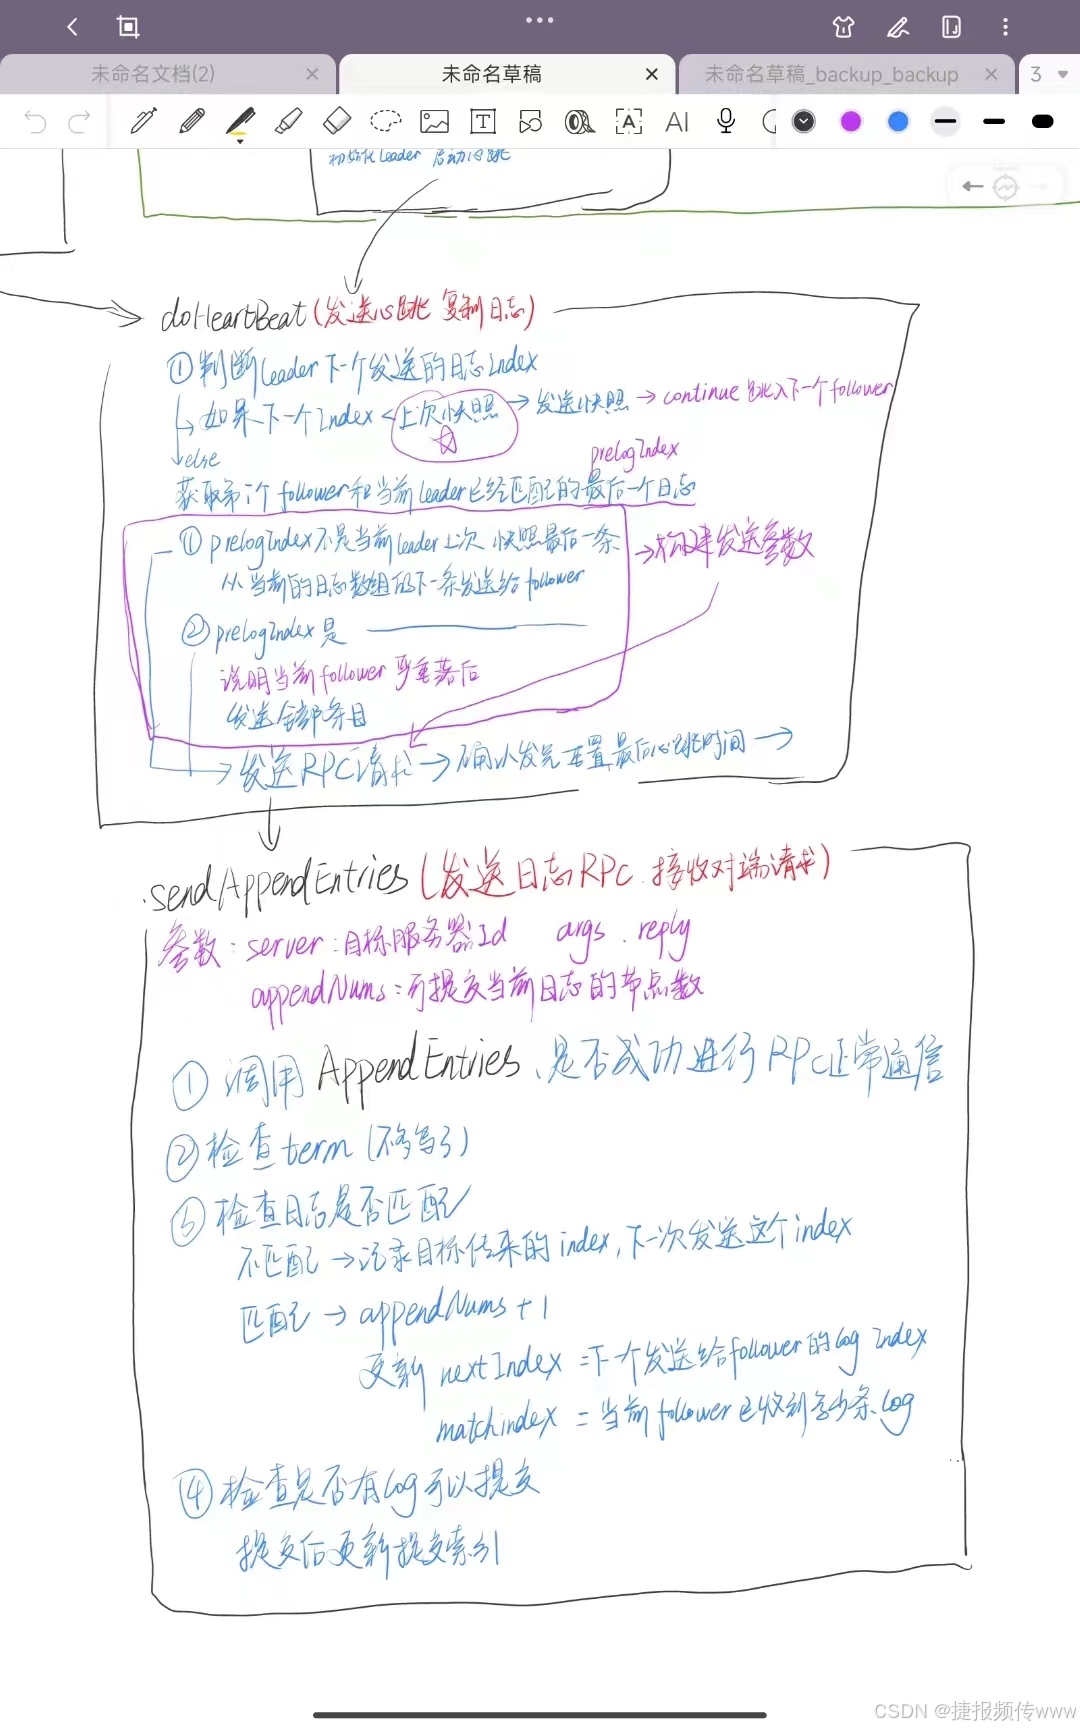 未命名文档(2)
未命名草稿
未命名草稿_backup_backup
3
初始化leader 启动心跳
doHeartBeat(发送心跳 复制日志)
①判断leader下一个发送的日志Index
如果下一个Index<上次快照→发送快照→continue 跳入下一个follower
else
prelogIndex
获取第i个follower和当前leader已经匹配的最后一个日志
①prelogIndex不是当前leader上次快照最后一条
→构建发送参数
从当前的日志数组的下一条发送给follower
②prelogIndex是
说明当前follower严重落后
发送全部条目
发送RPC请求→确认发完 重置最后心跳时间→
sendAppendEntries(发送日志RPC.接收对端请求)
参数:server:目标服务器Id args.reply
appendNums:可提交当前日志的节点数
①调用AppendEntries、是否成功进行RPC正常通信
②检查term(不多写了)
③检查日志是否匹配
不匹配→记录目标传来的index,下一次发送这个index
匹配→appendNums+1
更新nextIndex=下一个发送给follower的log Index
matchindex=当前follower已收到多少条log
④检查是否有log可以提交
提交后更新提交索引
CSDN @捷报频传www